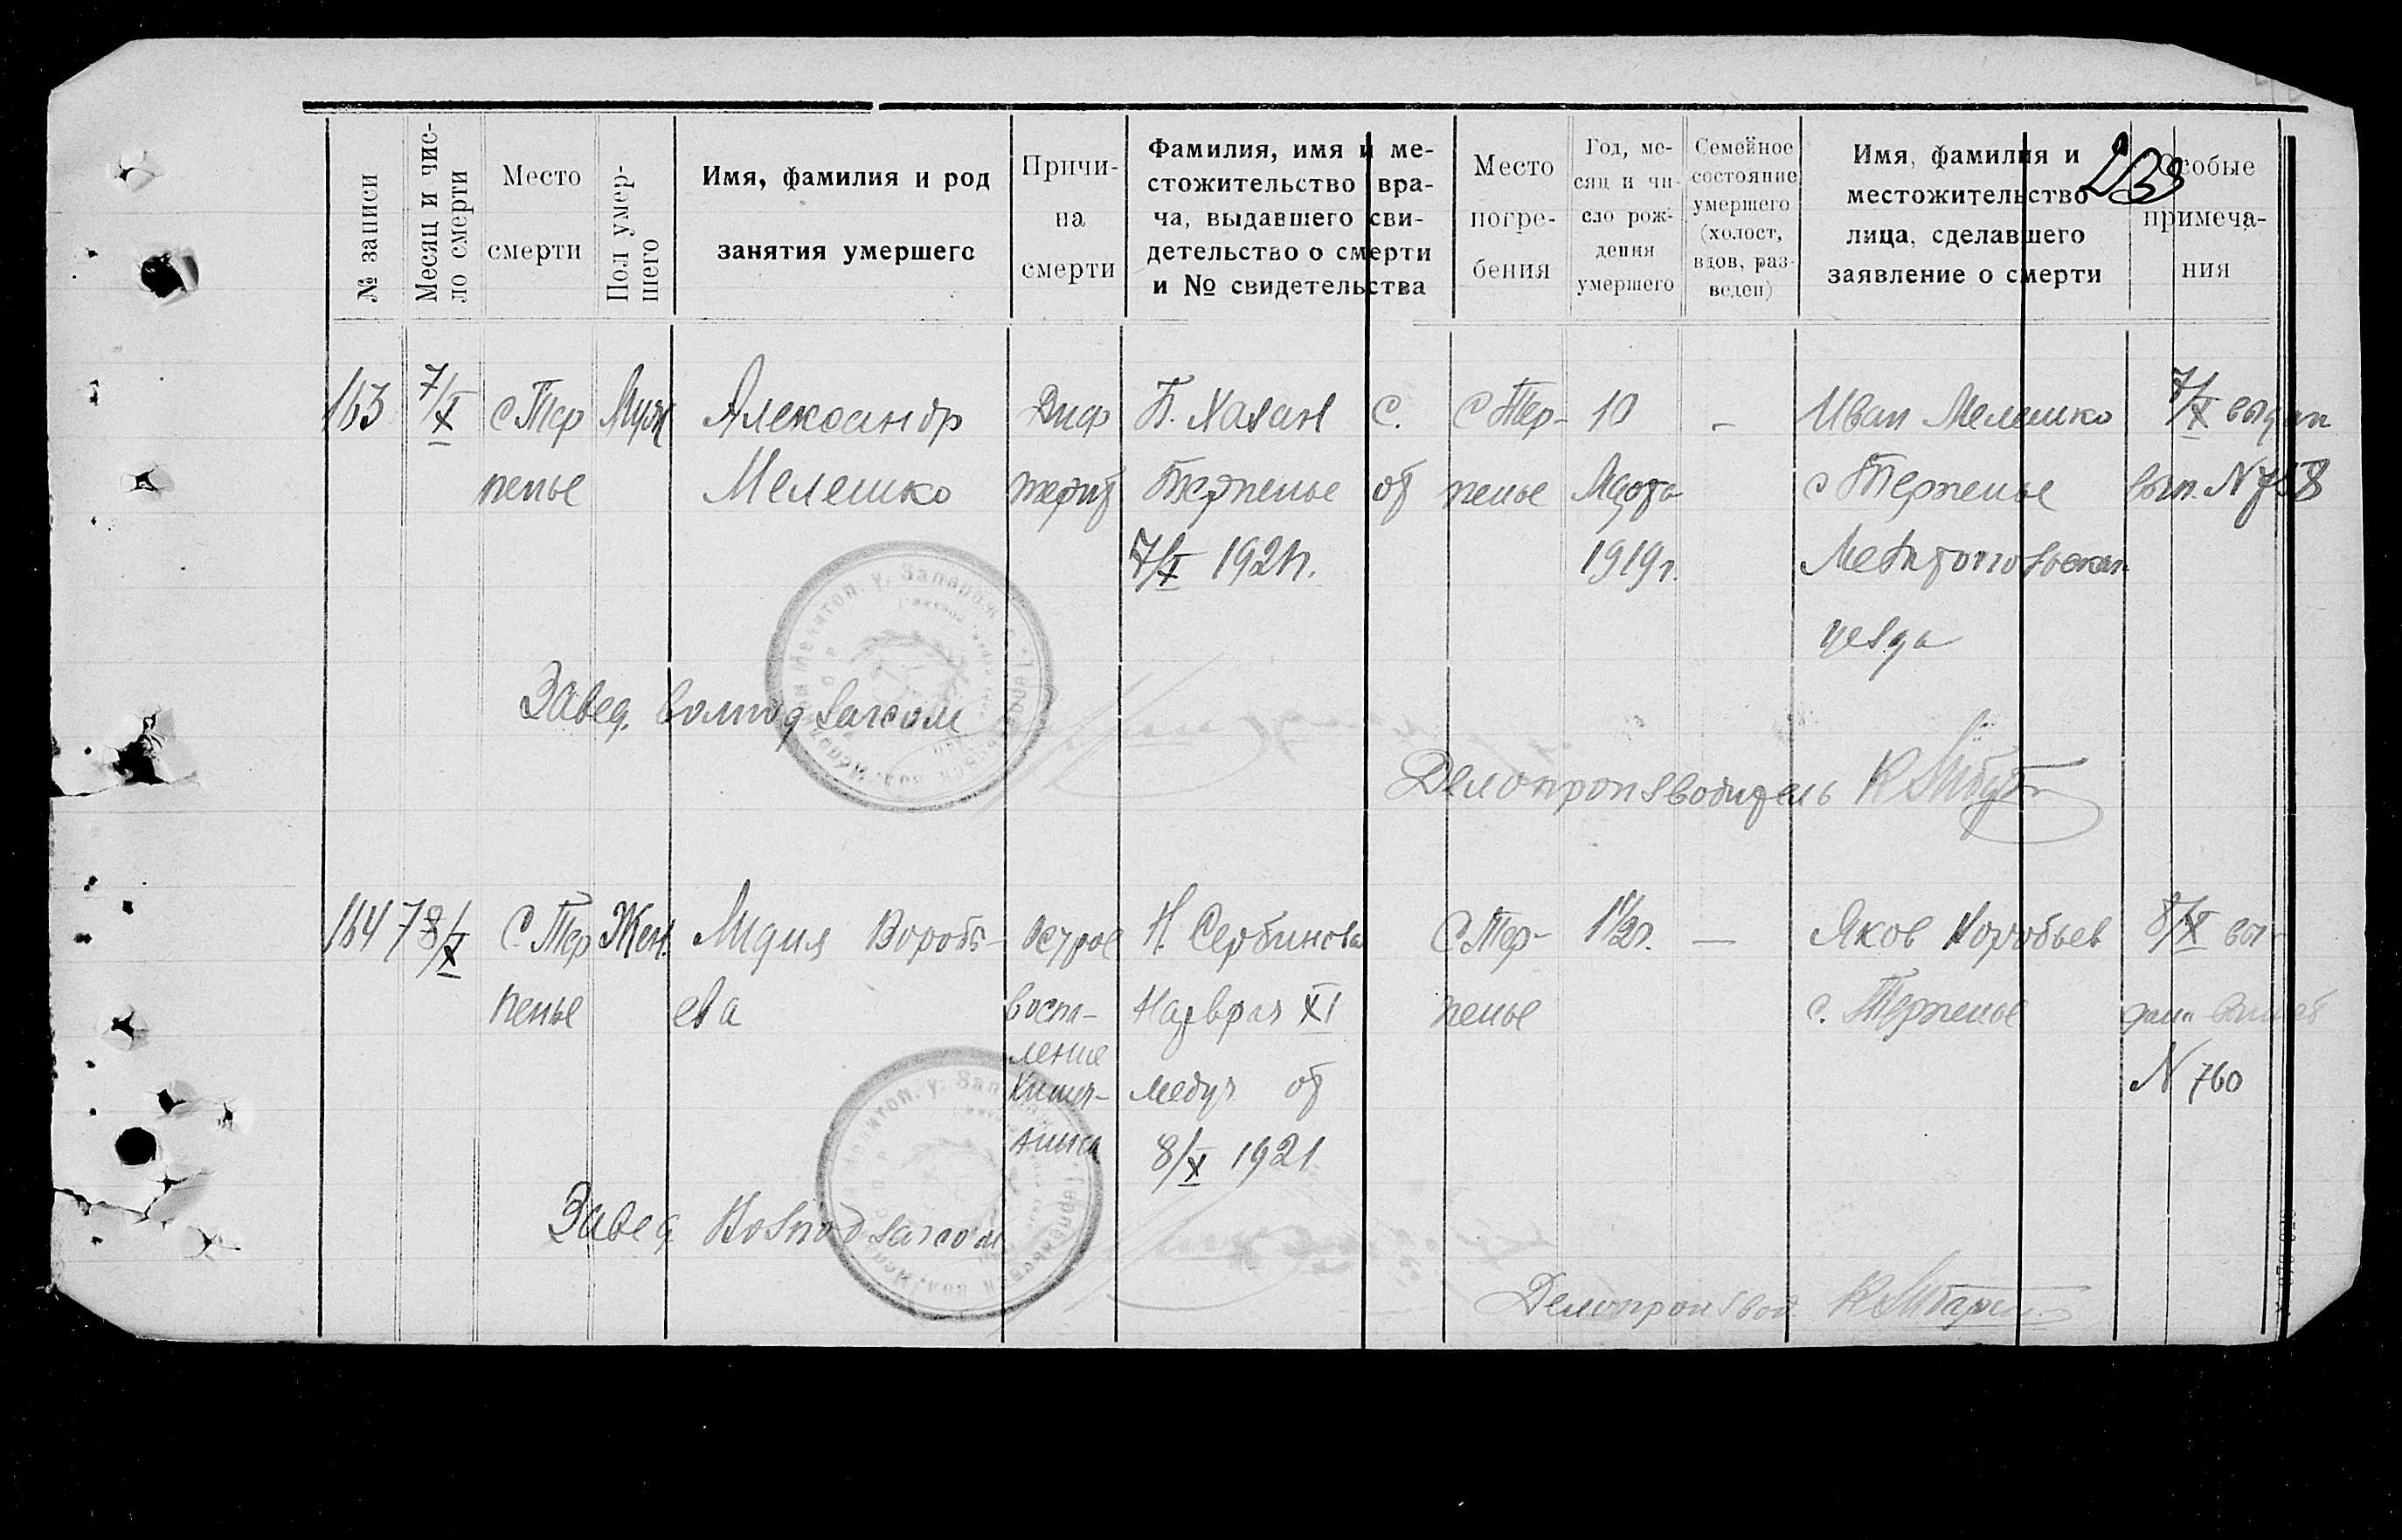 № записи
Месяц и чис-
ло смерти
Место
смерти
Пол умер-
шего
Имя, фамилия и род
занятия умершего
Причи-
на
смерти
Фамилия, имя и ме-
стожительство вра-
ча, выдавшего сви-
детельство о смерти
и № свидетельства
Место
погре-
бения
Год, ме-
сяц и чи-
сло рож-
дения
умершего
Семейное
состояние
умершего
(холост,
вдов, раз-
веден)
Имя, фамилия и
местожительство
лица, сделавшего
заявление о смерти
Особые
примеча-
ния
163
7/X
с Тер
пенье
Муж
Александр
Мелешко
Диф
терит
Б. Хазан С.
Терпенье от
7/X 1921г.
С Тер-
пенье
10
Марта
1919г.
-
Иван Мелешко
с Терпенье
Мелитопольскаго
уезда
7/X выдан
вып. N 758
Завед. волподзагсом
Делопроизводитель
164
8/X
С. Тер
пенье
Жен.
Лидия Воробь-
ева
острое
воспа-
ление
Кишеч-
ника
Н. Сербинова
Надврач XI
медуч от
8/X 1921
С Тер-
пенье
1½г.
—
Яков Воробьев
с. Терпенье
8/X вы-
дан
N 760
Завед Волподзагсом
Делопроизвод.